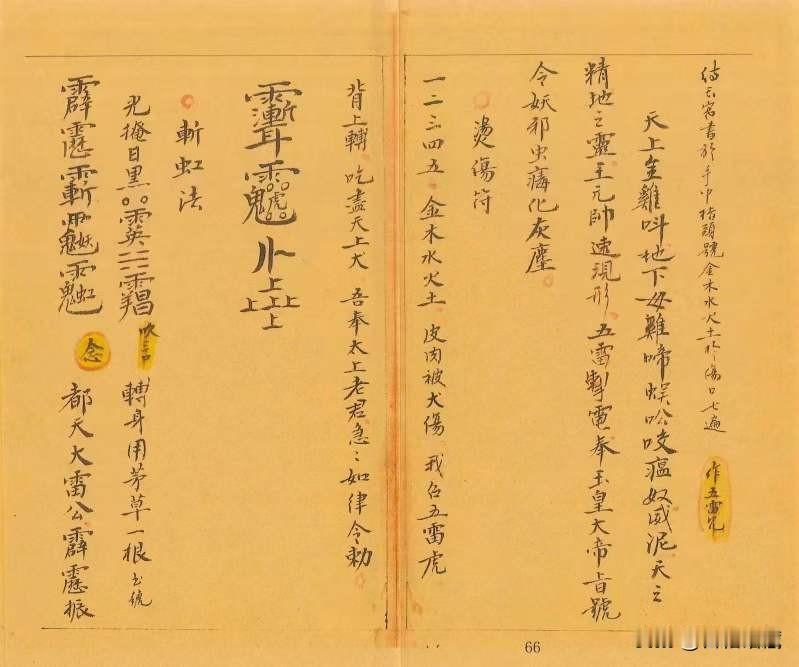 书于手中指头号金木水火土於伤口七遍
作五雷咒
天上金雞叫地下母雞啼蜈蚣咬瘟奴威泥天之
精地之靈王元帥速現形五雷擊電奉玉皇大帝旨號
令妖邪虫毒化灰塵
燙傷符
一二三四五 金木水火土 皮肉被火傷 我召五雷虎
背上轉 吃盡天上火 吾奉太上老君急:如律令勅
上
上 上 上
上
斬虹法
先掩目黑
吹三口
轉身用茅草一根
霹靂
念
都天大雷公霹靂振
66